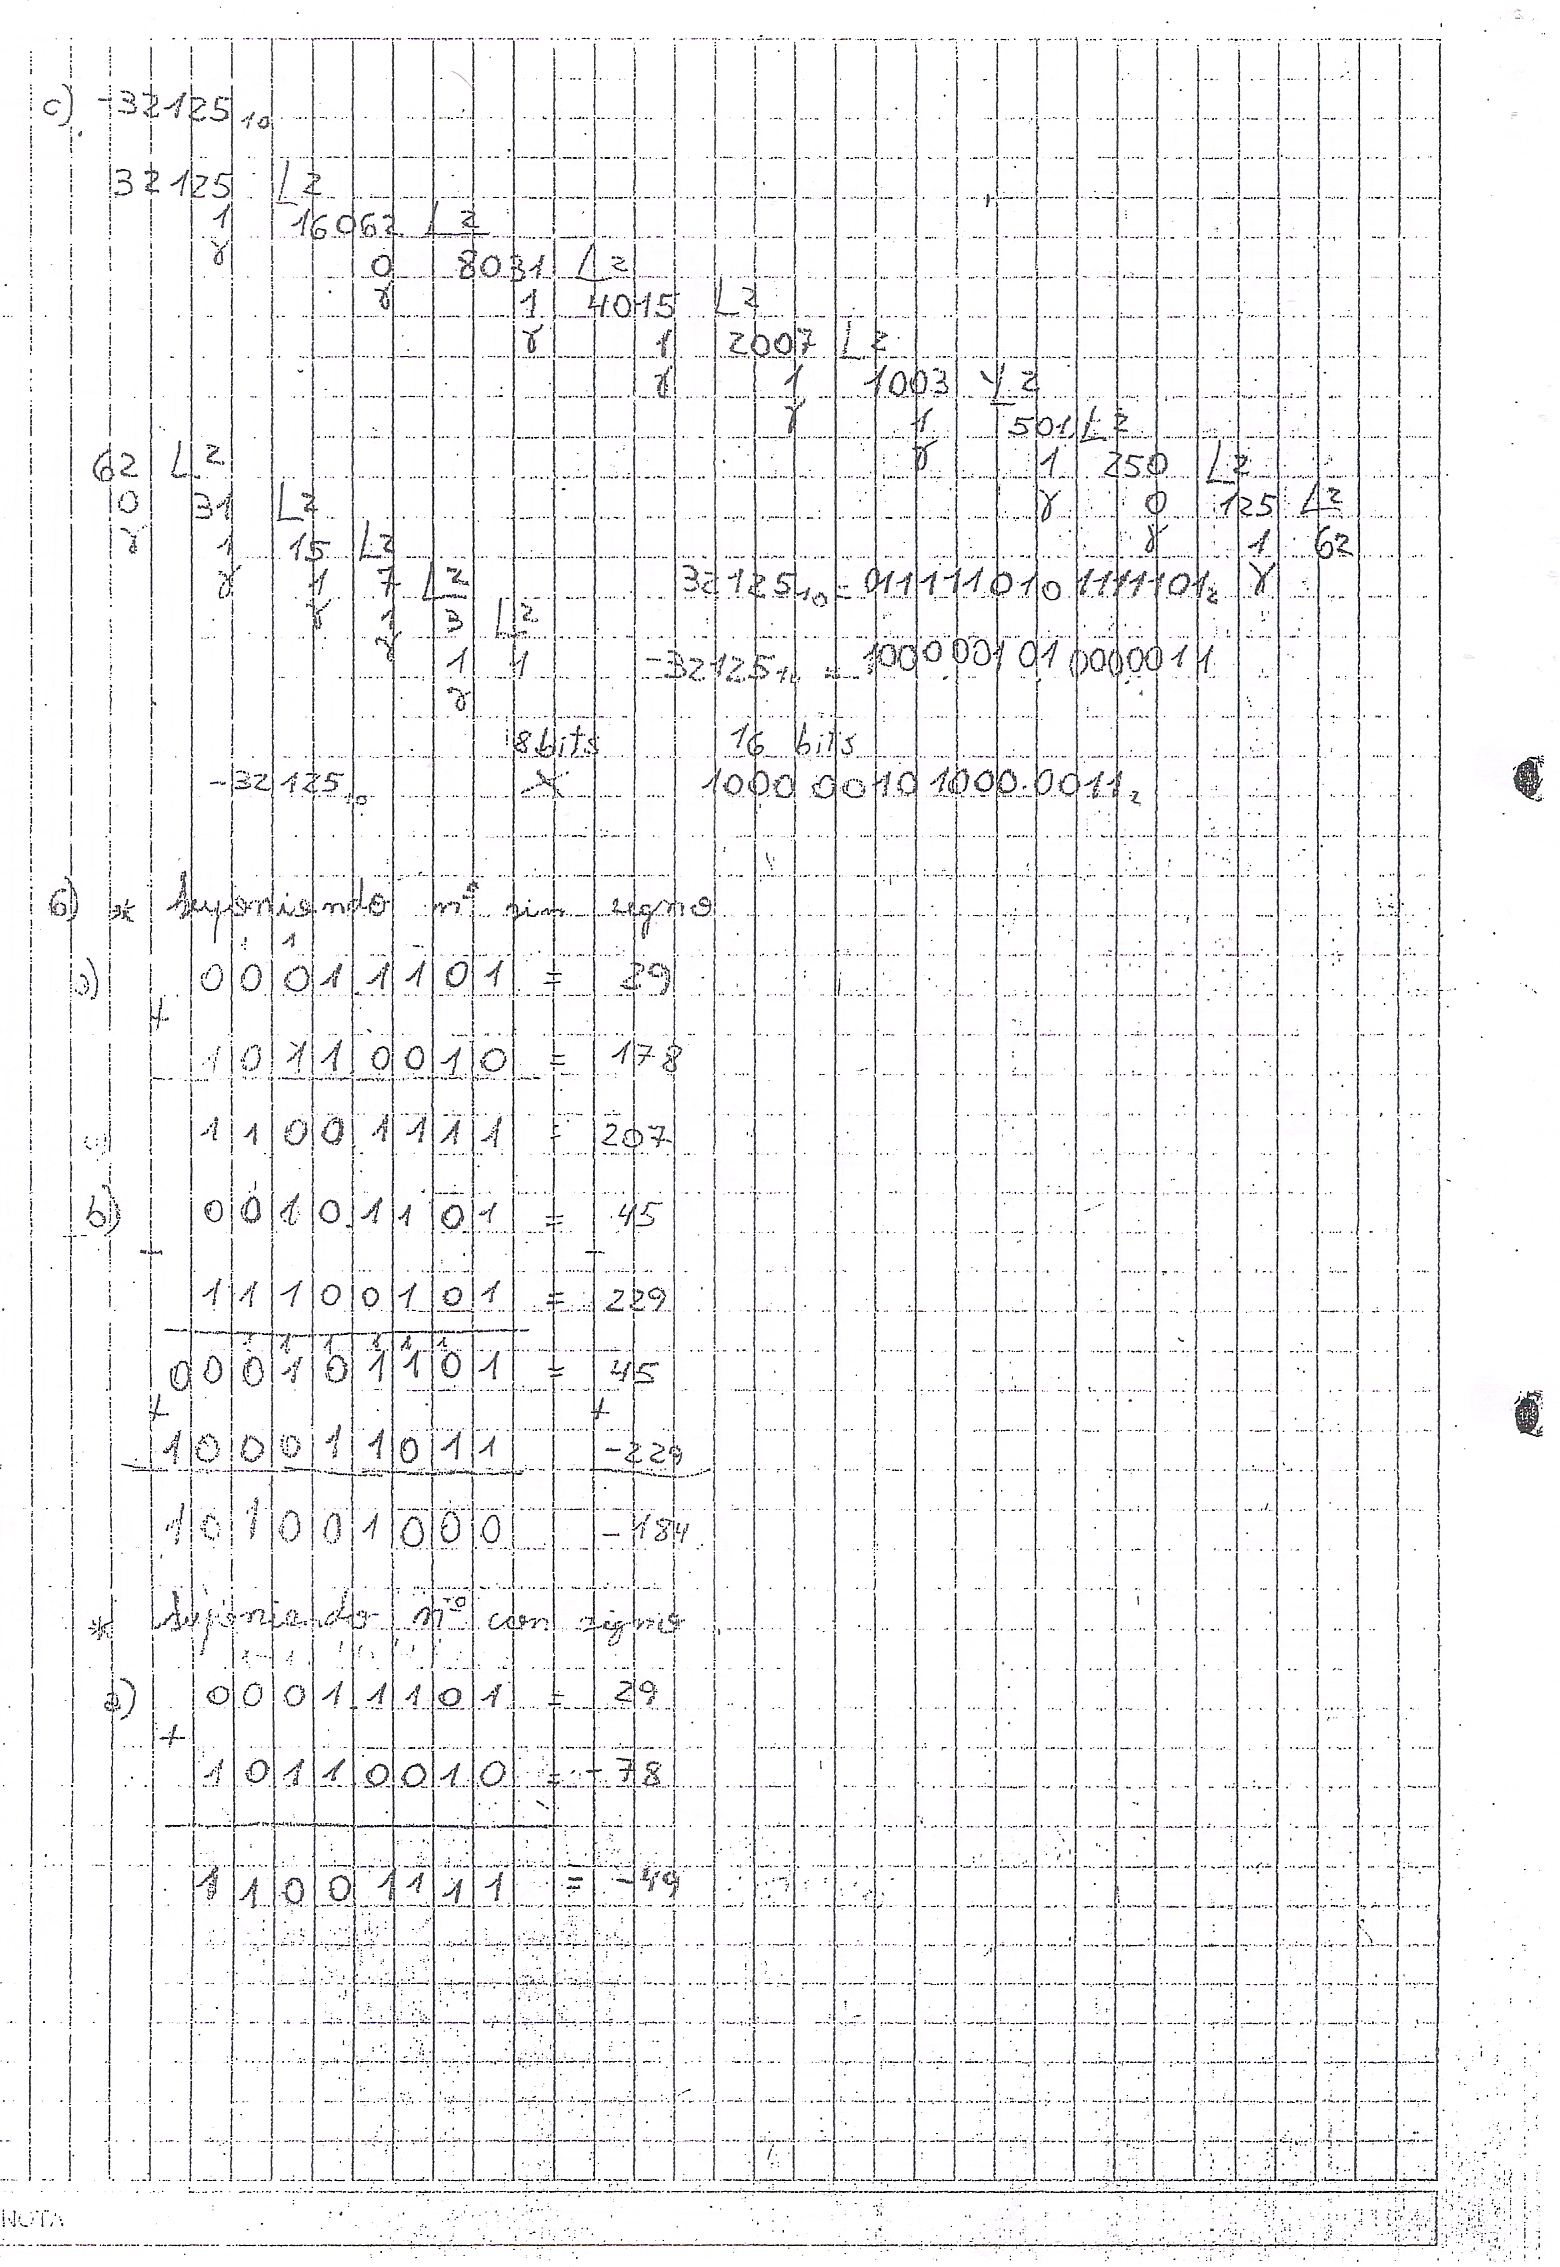 c) -32125₁₀
32125 L2
1 16062 L2
r 0 8031 L2
r 1 4015 L2
r 1 2007 L2
r 1 1003 L2
r 1 501 L2
62 L2 r 1 250 L2
0 31 L2 r 0 125 L2
r 1 15 L2 r 1 62
r 1 7 L2 32125₁₀ = 0111110101111101₂ r
r 1 3 L2
r 1 1 -32125₁₀ = 1000001010000011
r
8 bits 16 bits
-32125₁₀ X 1000 0010 1000 0011₂
6) * Suponiendo nº sin signo
1
a) 00011101 = 29
+
10110010 = 178
11001111 = 207
b) 00101101 = 45
- -
11100101 = 229
1 1 1 1 1 1
000101101 = 45
+ +
100011011 -229
101001000 -184
* Suponiendo nº con signo
a) 00011101 = 29
+
10110010 = -78
11001111 = -49
NOTA